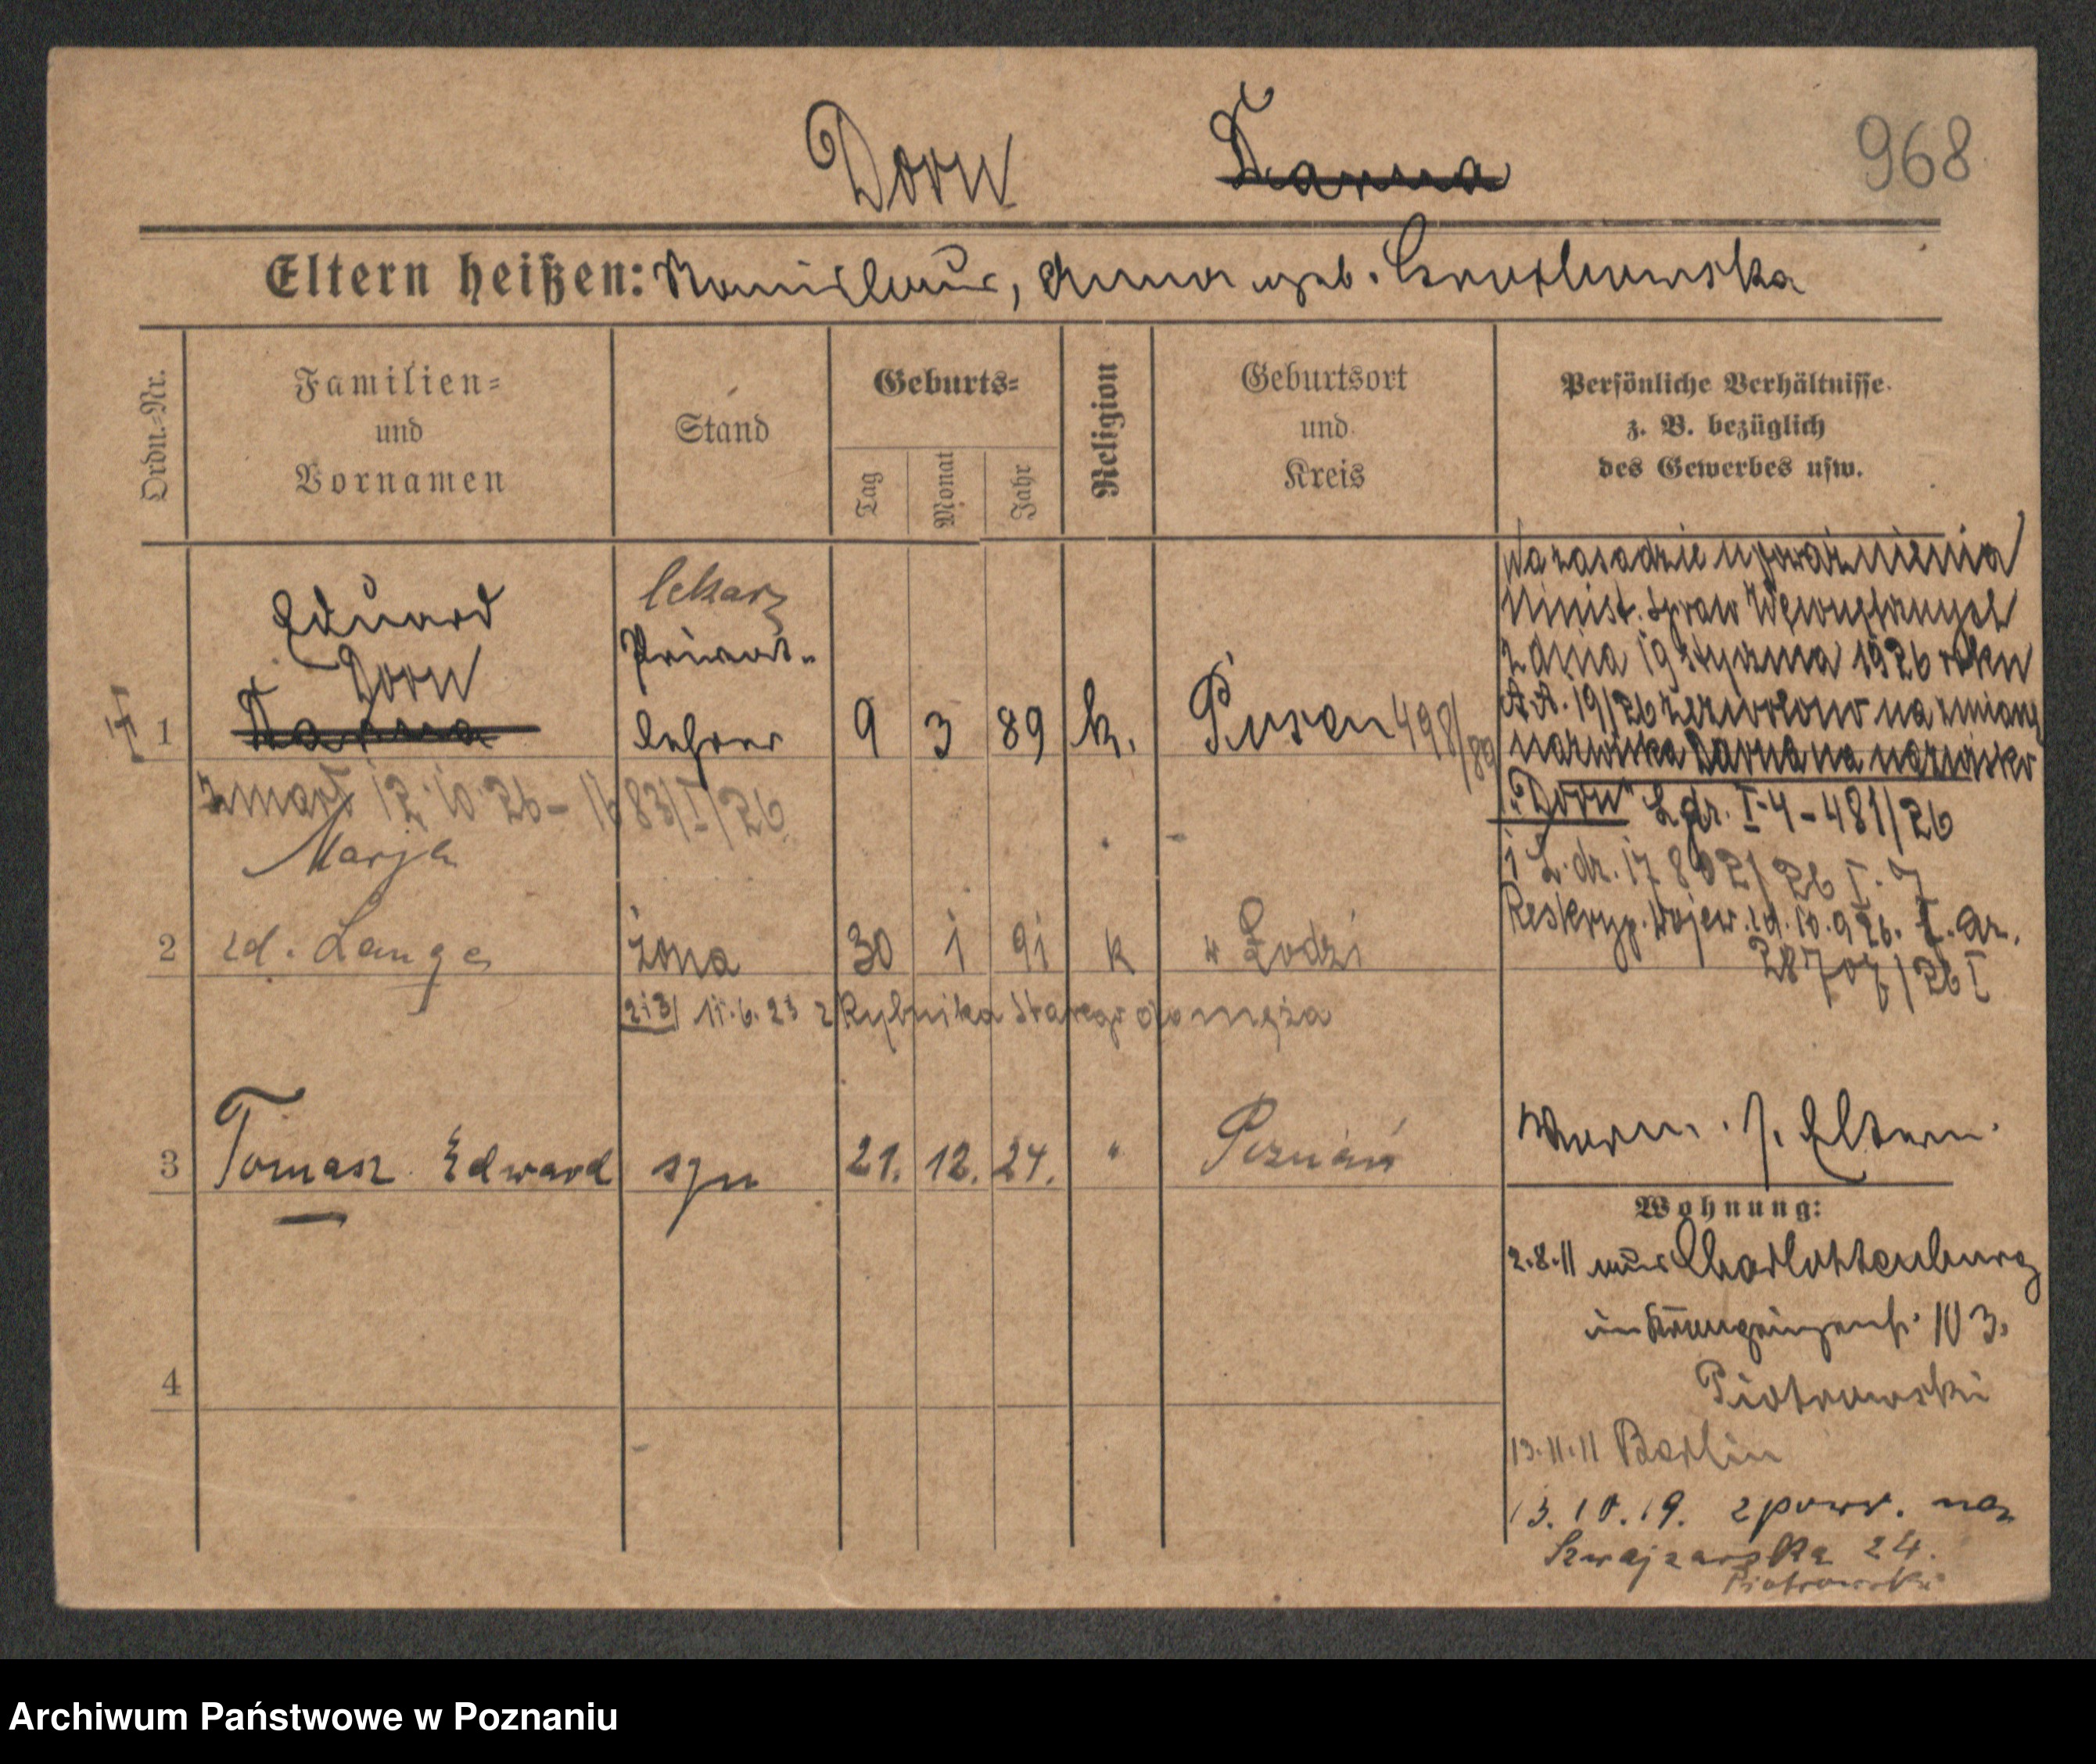 Dorn Darna 968
Eltern heißen: Stanislaus, Anna geb.
Ordn.-Nr.
Familien-
und
Vornamen
Stand
Geburts-
Tag
Monat
Jahr
Religion
Geburtsort
und
Kreis
Persönliche Verhältnisse
z. B. bezüglich
des Gewerbes usw.
1
Eduard
Dorn
Darna
lekarz
Privat-
lehrer
9 3 89 k. Posen 498/89
zmarł 12.10.26 - 1683/I/26
Na zasadzie upoważnienia
Minist. Spraw Wewnętrznych
z dnia 19 stycznia 1926 roku
A.A. 19/26 zezwolono na zmianę
nazwiska Darna na nazwisko
"Dorn" L.dr. I-4-481/26
i L.dr. 17802/26 I.7
Reskryp. Wojew. z d. 10.9 26. L. dz.
28707/26 I
Marja
2 zd. Lange żona 30 1 91 k w Łodzi
2i3/ 11.6.23 z Rybnika Starego do męża
3 Tomasz Edward syn 21. 12. 24. " Poznań
Eltern.
Wohnung:
2.8.11 aus Charlottenburg
103.
Piotrowski
13.11.11 Berlin
13.10.19. z powr.
Szwajzarska 24.
Piotrowski
4
Archiwum Państwowe w Poznaniu